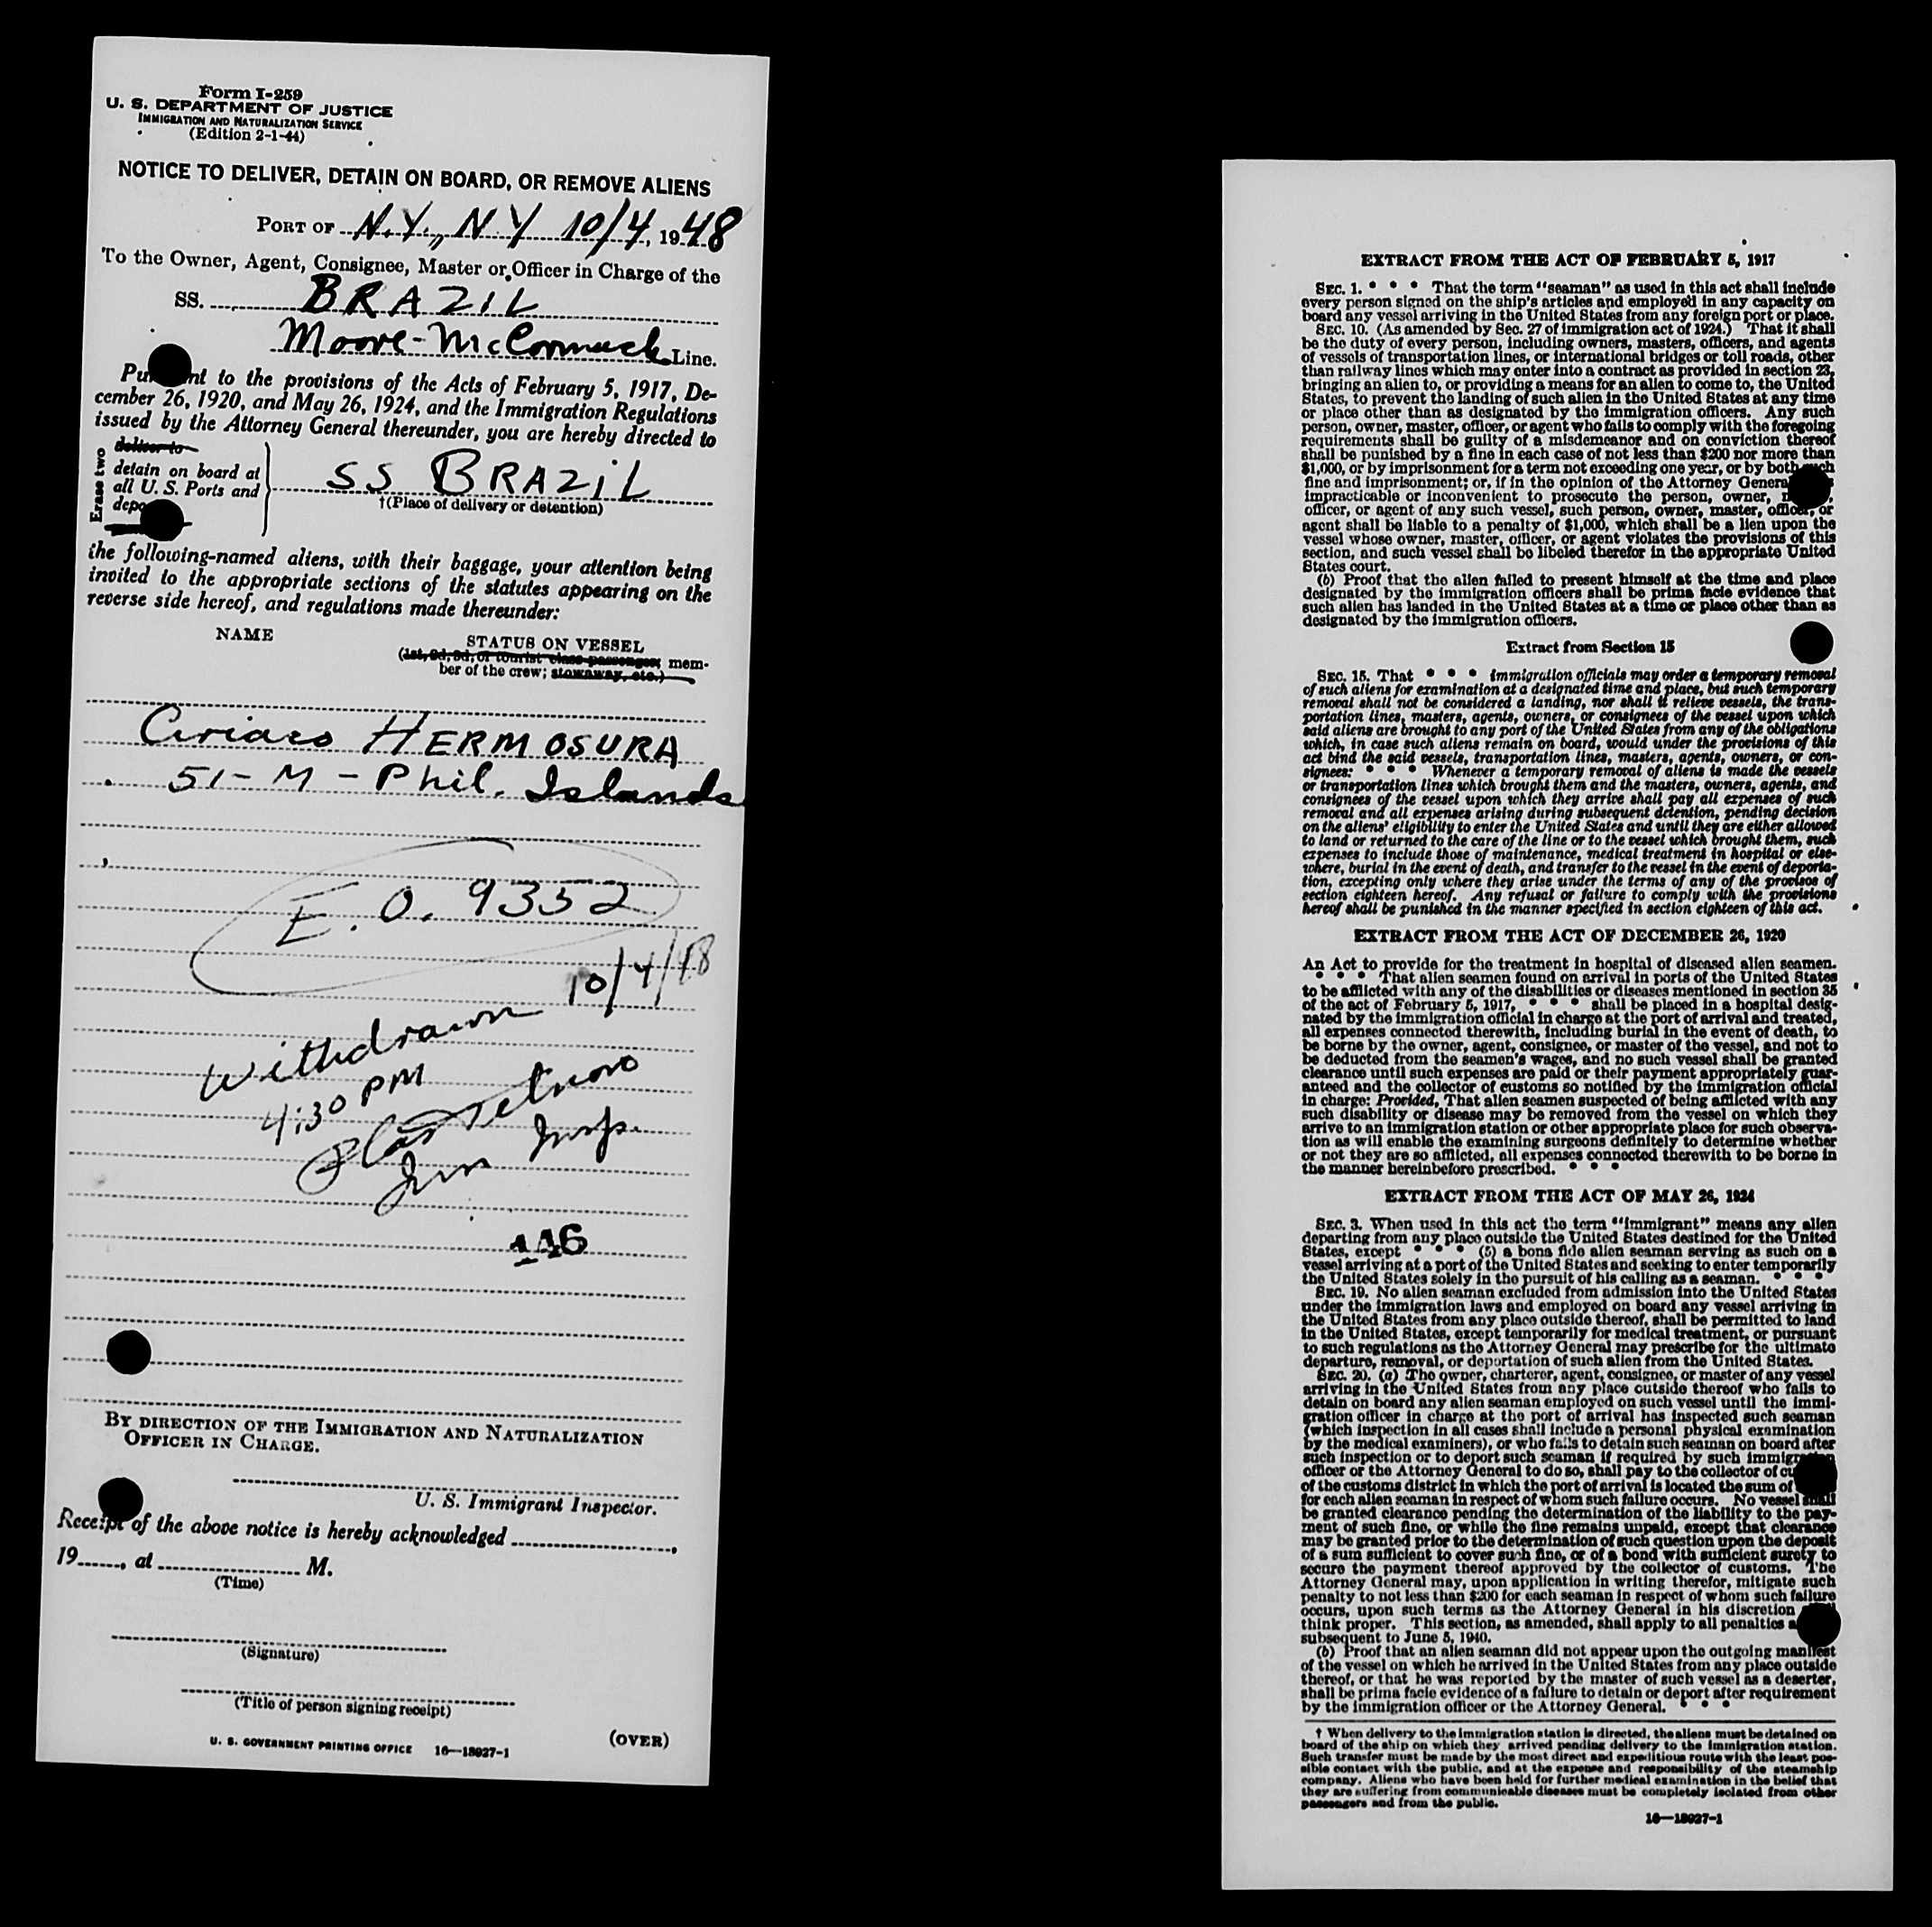 Form I-259
U. S. DEPARTMENT OF JUSTICE
IMMIGRATION AND NATURALIZATION SERVICE
(Edition 2-1-44)
NOTICE TO DELIVER, DETAIN ON BOARD, OR REMOVE ALIENS
PORT OF N.Y., N Y 10/4, 1948
To the Owner, Agent, Consignee, Master or Officer in Charge of the
SS. BRAZIL
Moore-McCormack Line.
Pu nt to the provisions of the Acts of February 5, 1917, De-
cember 26, 1920, and May 26, 1924, and the Immigration Regulations
issued by the Attorney General thereunder, you are hereby directed to
Erase two
deliver to
detain on board at
all U. S. Ports and
depo
SS BRAZIL
†(Place of delivery or detention)
the following-named aliens, with their baggage, your attention being
invited to the appropriate sections of the statutes appearing on the
reverse side hereof, and regulations made thereunder:
NAME STATUS ON VESSEL
(1st, 2d, 3d, or tourist class passenger; mem-
ber of the crew; stowaway, etc.)
Ciriaco HERMOSURA
51 - M - Phil. Islands
E. O. 9352
10/4/48
Withdrawn
4:30 PM
Imm Insp.
146
BY DIRECTION OF THE IMMIGRATION AND NATURALIZATION
OFFICER IN CHARGE.
U. S. Immigrant Inspector.
Receipt of the above notice is hereby acknowledged
19 , at M.
(Time)
(Signature)
(Title of person signing receipt)
U. S. GOVERNMENT PRINTING OFFICE 16—18927-1
(OVER)
EXTRACT FROM THE ACT OF FEBRUARY 5, 1917
SEC. 1. * * * That the term "seaman" as used in this act shall include
every person signed on the ship's articles and employed in any capacity on
board any vessel arriving in the United States from any foreign port or place.
SEC. 10. (As amended by Sec. 27 of immigration act of 1924.) That it shall
be the duty of every person, including owners, masters, officers, and agents
of vessels of transportation lines, or international bridges or toll roads, other
than railway lines which may enter into a contract as provided in section 23,
bringing an alien to, or providing a means for an alien to come to, the United
States, to prevent the landing of such alien in the United States at any time
or place other than as designated by the immigration officers. Any such
person, owner, master, officer, or agent who fails to comply with the foregoing
requirements shall be guilty of a misdemeanor and on conviction thereof
shall be punished by a fine in each case of not less than $200 nor more than
$1,000, or by imprisonment for a term not exceeding one year, or by both such
fine and imprisonment; or, if in the opinion of the Attorney Genera
impracticable or inconvenient to prosecute the person, owner,
officer, or agent of any such vessel, such person, owner, master, officer, or
agent shall be liable to a penalty of $1,000, which shall be a lien upon the
vessel whose owner, master, officer, or agent violates the provisions of this
section, and such vessel shall be libeled therefor in the appropriate United
States court.
(b) Proof that the alien failed to present himself at the time and place
designated by the immigration officers shall be prima facie evidence that
such alien has landed in the United States at a time or place other than as
designated by the immigration officers.
Extract from Section 15
SEC. 15. That * * * immigration officials may order a temporary removal
of such aliens for examination at a designated time and place, but such temporary
removal shall not be considered a landing, nor shall it relieve vessels, the trans-
portation lines, masters, agents, owners, or consignees of the vessel upon which
said aliens are brought to any port of the United States from any of the obligations
which, in case such aliens remain on board, would under the provisions of this
act bind the said vessels, transportation lines, masters, agents, owners, or con-
signees: * * * Whenever a temporary removal of aliens is made the vessels
or transportation lines which brought them and the masters, owners, agents, and
consignees of the vessel upon which they arrive shall pay all expenses of such
removal and all expenses arising during subsequent detention, pending decision
on the aliens' eligibility to enter the United States and until they are either allowed
to land or returned to the care of the line or to the vessel which brought them, such
expenses to include those of maintenance, medical treatment in hospital or else-
where, burial in the event of death, and transfer to the vessel in the event of deporta-
tion, excepting only where they arise under the terms of any of the provisos of
section eighteen hereof. Any refusal or failure to comply with the provisions
hereof shall be punished in the manner specified in section eighteen of this act.
EXTRACT FROM THE ACT OF DECEMBER 26, 1920
An Act to provide for the treatment in hospital of diseased alien seamen.
* * * That alien seamen found on arrival in ports of the United States
to be afflicted with any of the disabilities or diseases mentioned in section 35
of the act of February 5, 1917, * * * shall be placed in a hospital desig-
nated by the immigration official in charge at the port of arrival and treated,
all expenses connected therewith, including burial in the event of death, to
be borne by the owner, agent, consignee, or master of the vessel, and not to
be deducted from the seamen's wages, and no such vessel shall be granted
clearance until such expenses are paid or their payment appropriately guar-
anteed and the collector of customs so notified by the immigration official
in charge: Provided, That alien seamen suspected of being afflicted with any
such disability or disease may be removed from the vessel on which they
arrive to an immigration station or other appropriate place for such observa-
tion as will enable the examining surgeons definitely to determine whether
or not they are so afflicted, all expenses connected therewith to be borne in
the manner hereinbefore prescribed. * * *
EXTRACT FROM THE ACT OF MAY 26, 1924
SEC. 3. When used in this act the term "immigrant" means any alien
departing from any place outside the United States destined for the United
States, except * * * (5) a bona fide alien seaman serving as such on a
vessel arriving at a port of the United States and seeking to enter temporarily
the United States solely in the pursuit of his calling as a seaman. * * *
SEC. 19. No alien seaman excluded from admission into the United States
under the immigration laws and employed on board any vessel arriving in
the United States from any place outside thereof, shall be permitted to land
in the United States, except temporarily for medical treatment, or pursuant
to such regulations as the Attorney General may prescribe for the ultimate
departure, removal, or deportation of such alien from the United States.
SEC. 20. (a) The owner, charterer, agent, consignee, or master of any vessel
arriving in the United States from any place outside thereof who fails to
detain on board any alien seaman employed on such vessel until the immi-
gration officer in charge at the port of arrival has inspected such seaman
(which inspection in all cases shall include a personal physical examination
by the medical examiners), or who fails to detain such seaman on board after
such inspection or to deport such seaman if required by such immigration
officer or the Attorney General to do so, shall pay to the collector of cu
of the customs district in which the port of arrival is located the sum of
for each alien seaman in respect of whom such failure occurs. No vessel shall
be granted clearance pending the determination of the liability to the pay-
ment of such fine, or while the fine remains unpaid, except that clearance
may be granted prior to the determination of such question upon the deposit
of a sum sufficient to cover such fine, or of a bond with sufficient surety to
secure the payment thereof approved by the collector of customs. The
Attorney General may, upon application in writing therefor, mitigate such
penalty to not less than $200 for each seaman in respect of whom such failure
occurs, upon such terms as the Attorney General in his discretion
think proper. This section, as amended, shall apply to all penalties a
subsequent to June 5, 1940.
(b) Proof that an alien seaman did not appear upon the outgoing manifest
of the vessel on which he arrived in the United States from any place outside
thereof, or that he was reported by the master of such vessel as a deserter,
shall be prima facie evidence of a failure to detain or deport after requirement
by the immigration officer or the Attorney General. * * *
† When delivery to the immigration station is directed, the aliens must be detained on
board of the ship on which they arrived pending delivery to the immigration station.
Such transfer must be made by the most direct and expeditious route with the least pos-
sible contact with the public, and at the expense and responsibility of the steamship
company. Aliens who have been held for further medical examination in the belief that
they are suffering from communicable diseases must be completely isolated from other
passengers and from the public.
16—18927-1